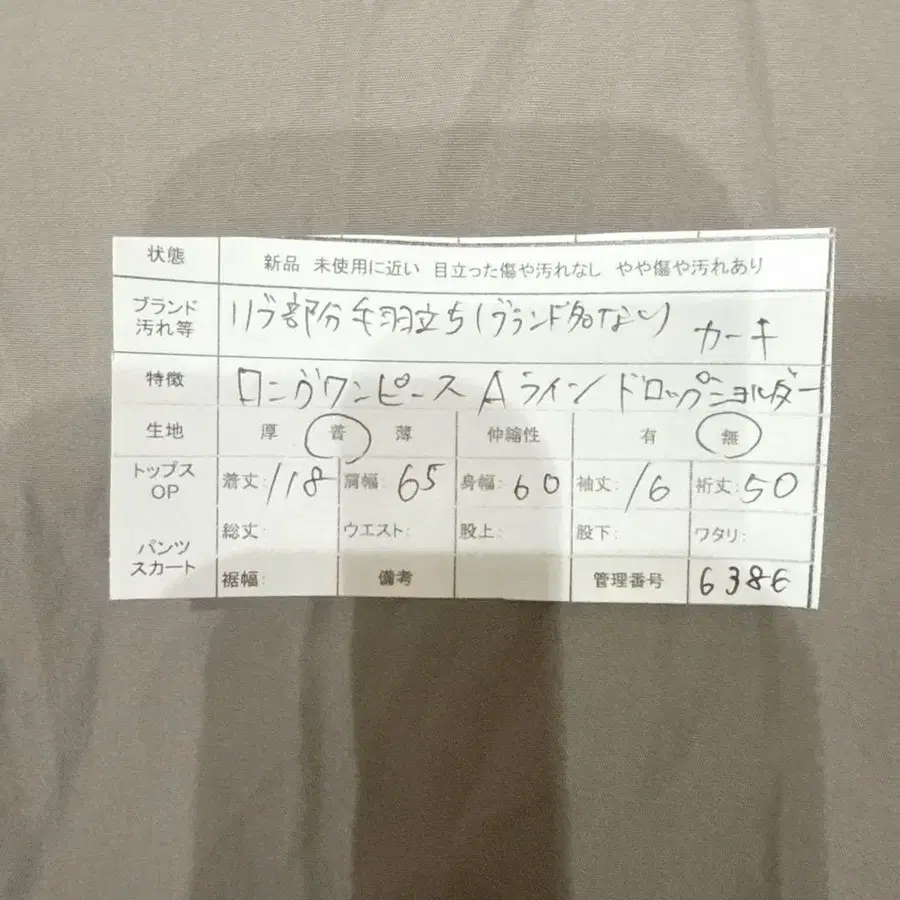 状態 新品 未使用に近い 目立った傷や汚れなし やや傷や汚れあり
ブランド 汚れ等 リブ部分毛羽立ち(ブランド名なし) カーキ
特徴 ロングワンピース Aライン ドロップショルダー
生地 厚 普 薄 伸縮性 有 無
トップス OP 着丈:118 肩幅:65 身幅:60 袖丈:16 裄丈:50
パンツ スカート 総丈: ウエスト: 股上: 股下: ワタリ:
裾幅: 備考 管理番号 6386